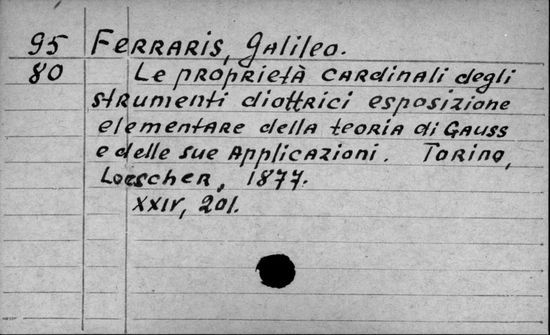 95 Ferraris, Galileo.
80 Le proprietà cardinali degli
strumenti diottrici esposizione
elementare della teoria di Gauss
e delle sue applicazioni. Torino,
Loescher, 1877.
XXIV, 201.